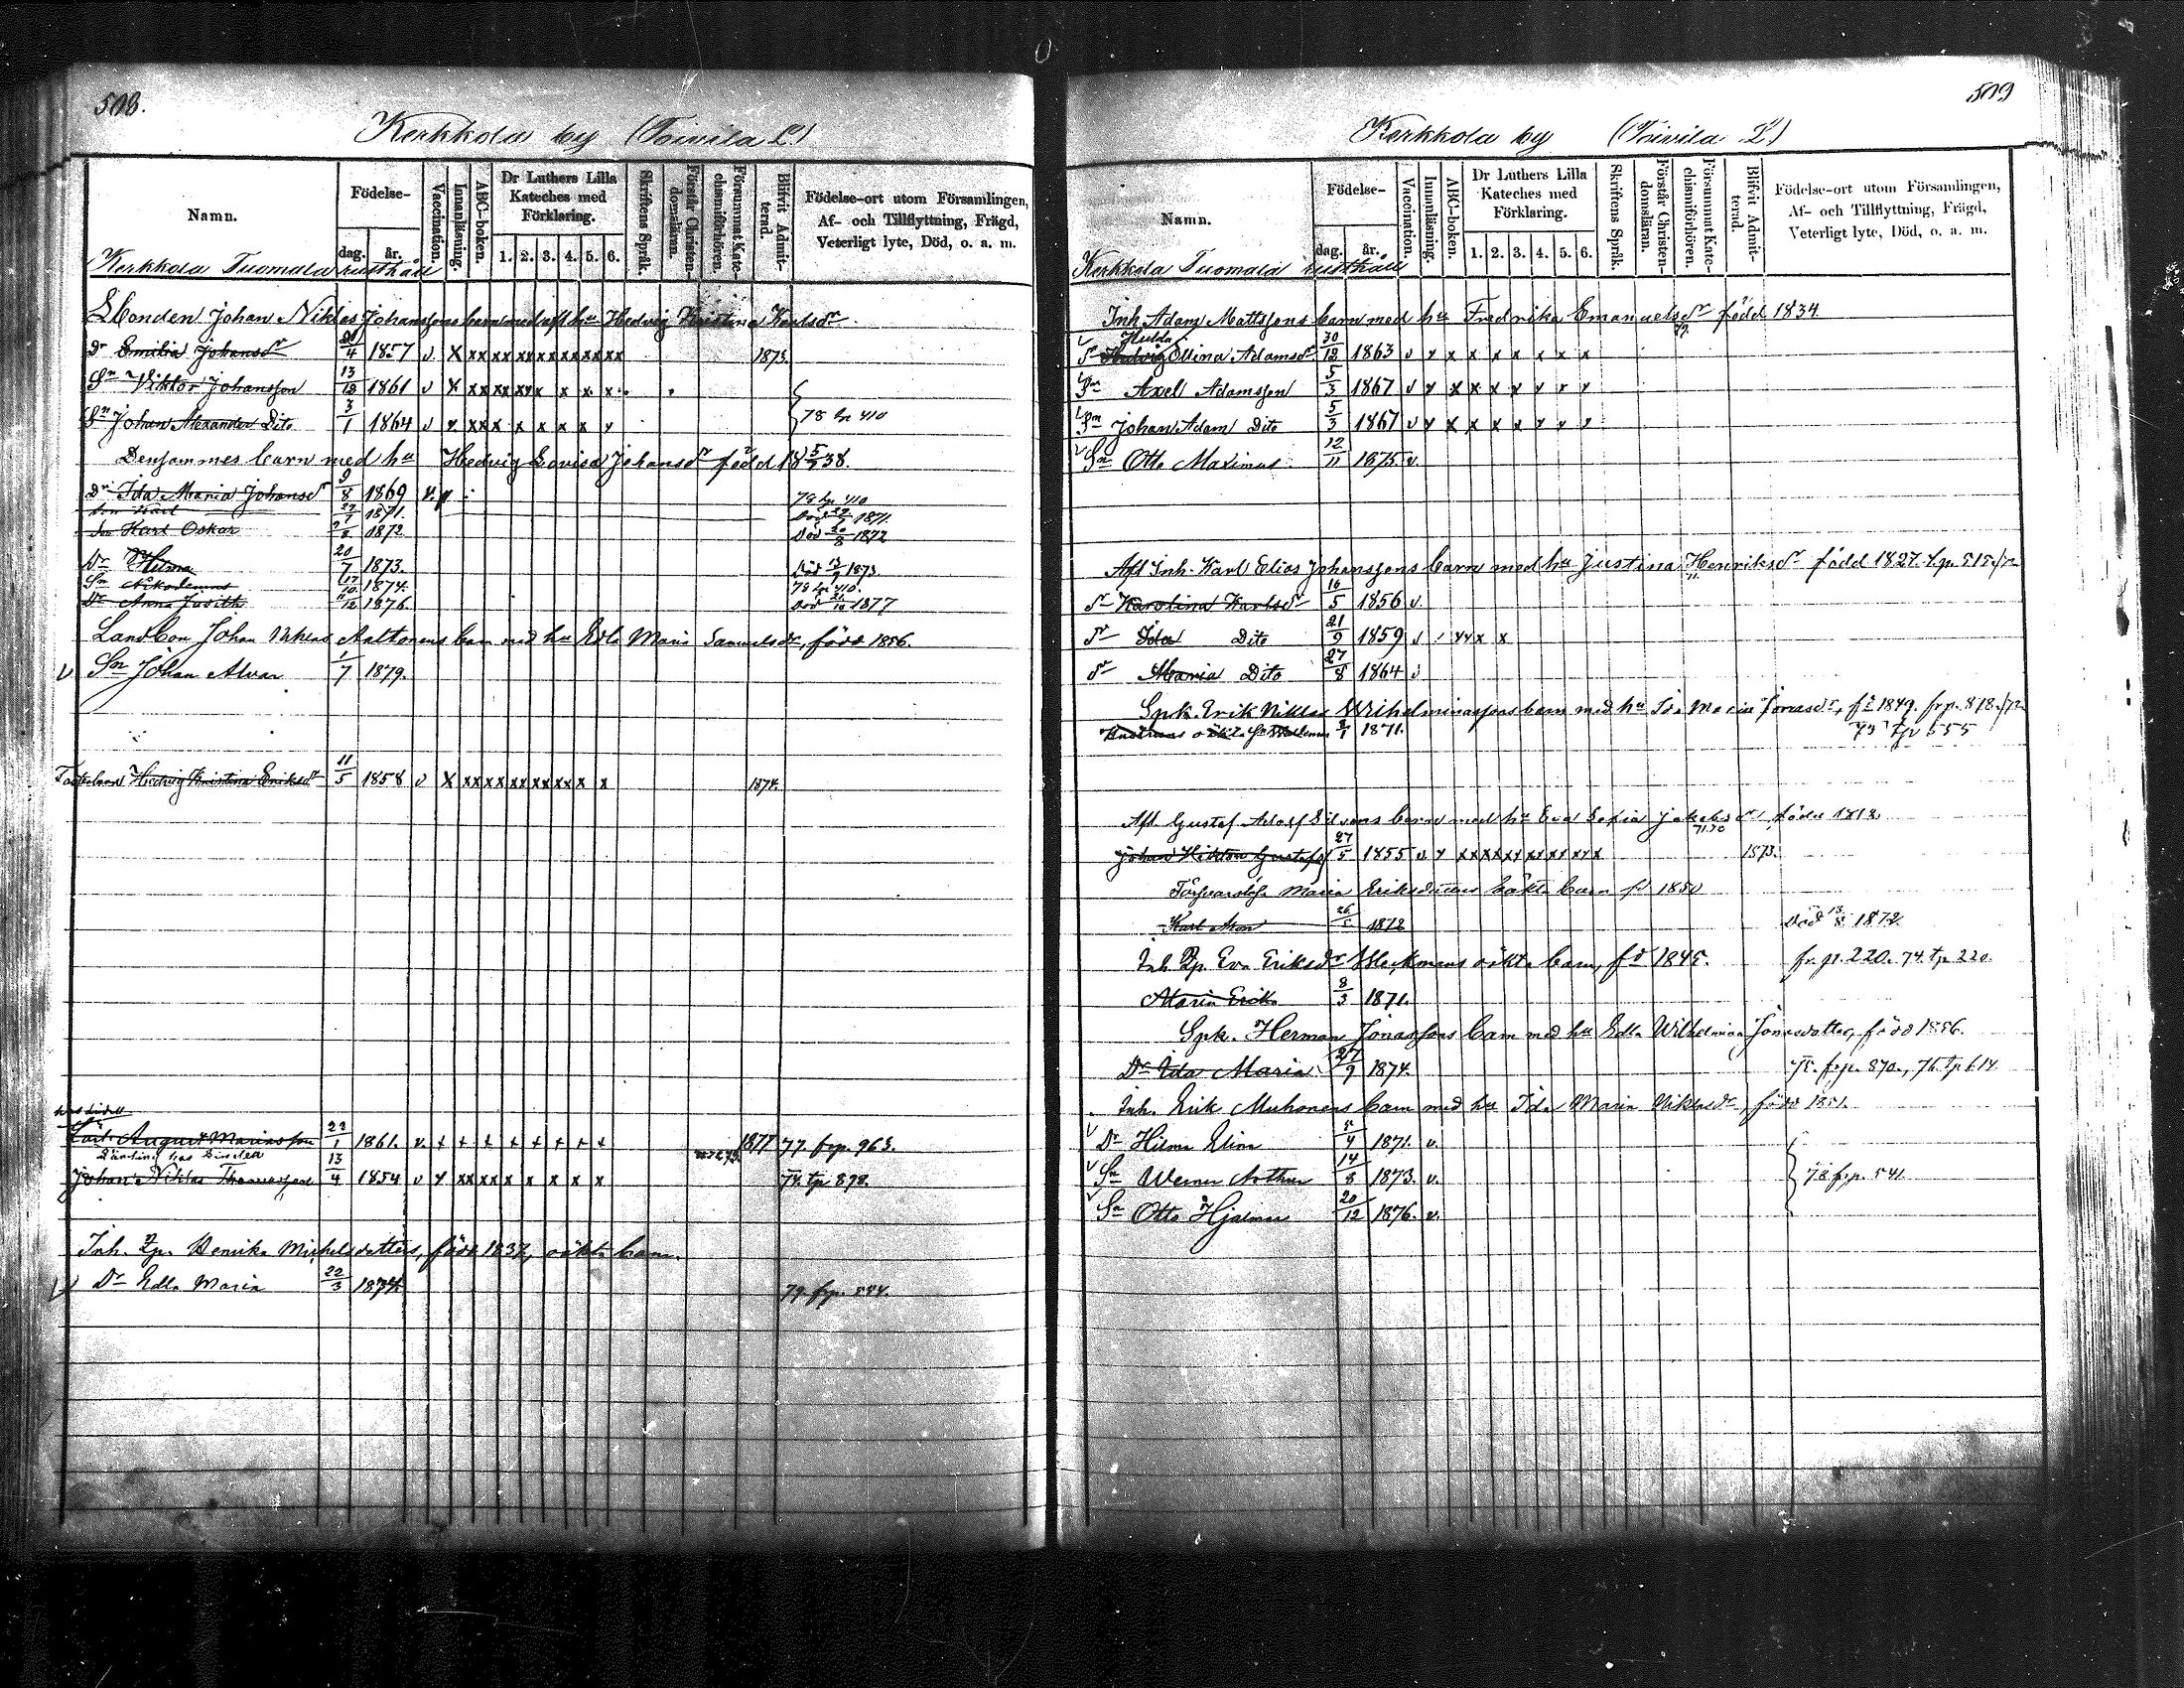 508.
Kerkkola by (Toivila L)
Namn.
Födelse-
dag.
år.
Vaccination.
Innanläsning.
ABC-boken.
Dr Luthers Lilla Kateches med Förklaring.
1. 2. 3. 4. 5. 6.
Skriftens Språk.
Förstår Christendomsläran.
Försummat Katechismiförhören.
Blifvit Admitterad.
Födelse-ort utom Församlingen,
Af- och Tillflyttning, Frägd,
Veterligt lyte, Död, o. a. m.
Kerkkola Tuomala rusthåll
Johan Niklas Johanssons barn med aflh hu Hedvig Kristina Karlsdr
Dr Emilia Johansdr 4 1857 v x xx xx xx xx xx xx xx 1873.
Sn Viktor Johansson 13/12 1861 v x xx xx xx x x x x
Sn Johan Alexander Dito 3/1 1864 v x xx x x x x x x 78 tp 410
Densammes barn med hu Hedvig Lovisa Johansdr född 18 5/7 38.
Dr Ida Maria Johansdr 9/8 1869 v 78 tp 410
1871. Död 1871.
Karl Oskar 1872 Död 20/8 1872
Dr Hilma 20/7 1873. Död 1873
Sn Nikodemus 17/10 1874. 78 tp 410.
Dr Anna Judith 11/12 1876. Död 1877
Landbon Johan Niklas Aaltonens barn med hu Edla Maria Samuelsdr, född 1856.
v Sn Johan Alvar 1/7 1879.
Hedvig Kristina Eriksdr 11/5 1858 v x xx xx xx xx x x x 1874.
August Mariasson 22/1 1861. v. + + + + + + + + 1877 77. frp. 963.
Johan Niklas Thomasson 13/4 1854 v x xx xx x x x x x 74. tp 878.
Inh. Henrika Michelsdotters, född 1837, oäkta barn.
v Dr Edla Maria 22/3 1874. 79. frp. 554.
509
Kerkkola by (Toivila L)
Namn.
Födelse-
dag.
år.
Vaccination.
Innanläsning.
ABC-boken.
Dr Luthers Lilla Kateches med Förklaring.
1. 2. 3. 4. 5. 6.
Skriftens Språk.
Förstår Christendomsläran.
Försummat Katechismiförhören.
Blifvit Admitterad.
Födelse-ort utom Församlingen,
Af- och Tillflyttning, Frägd,
Veterligt lyte, Död, o. a. m.
Kerkkola Tuomala rusthåll
Inh Adam Mattssons barn med hu Fredrika Emanuelsdr född 1834
Hulda
dr Hedvig Ollina Adamsdr 30/12 1863 v x x x x x x x x
Sn Axel Adamsson 5/3 1867 v x x x x x x x x
Sn Johan Adam Dito 5/3 1867 v x x x x x x x x
Sn Otto Maximus 12/11 1875 v.
Afl Inh. Karl Elias Johanssons barn med hu Justina Henriksdr född 1827. tp. 515
dr Karolina Karlsdr 16/5 1856 v.
dr Ida Dito 21/9 1859 v x x x x
dr Maria Dito 27/8 1864 v
Spk. Erik Niklas Wilhelminassons barn med hu Ida Maria Jonasdr, fd 1849. frp. 818.
1871. 73 tp 555
Afl. Gustaf Adolf barn med hu Eva Sofia Jakobsdr, född 1813.
Johan Gustafs 27/5 1855 v x xx xx xx xx xx xx x 1873.
Maria Eriksdotters oäkta barn fd 1850
Karl 1872 Död 13/8 1872
Inh. Eva Eriksdr oäkta barn, fd 1845. fr. p. 220. 74. tp 220.
Maria Erika 8/3 1871.
Spk. Herman Jonassons barn med hu Edla Wilhelmina Jonasdotter, född 1856.
Dr Ida Maria 27/9 1874. 75. frp. 870., 76. tp 614
Inh. Erik Muhonens barn med hu Ida Maria Niklasdr, född 1851.
v Dr Hilma Elina 4 1871. v.
v Sn Werner Arthur 14/8 1873. v. 78 frp. 541.
v Sn Otto Hjalmar 20/12 1876. v.